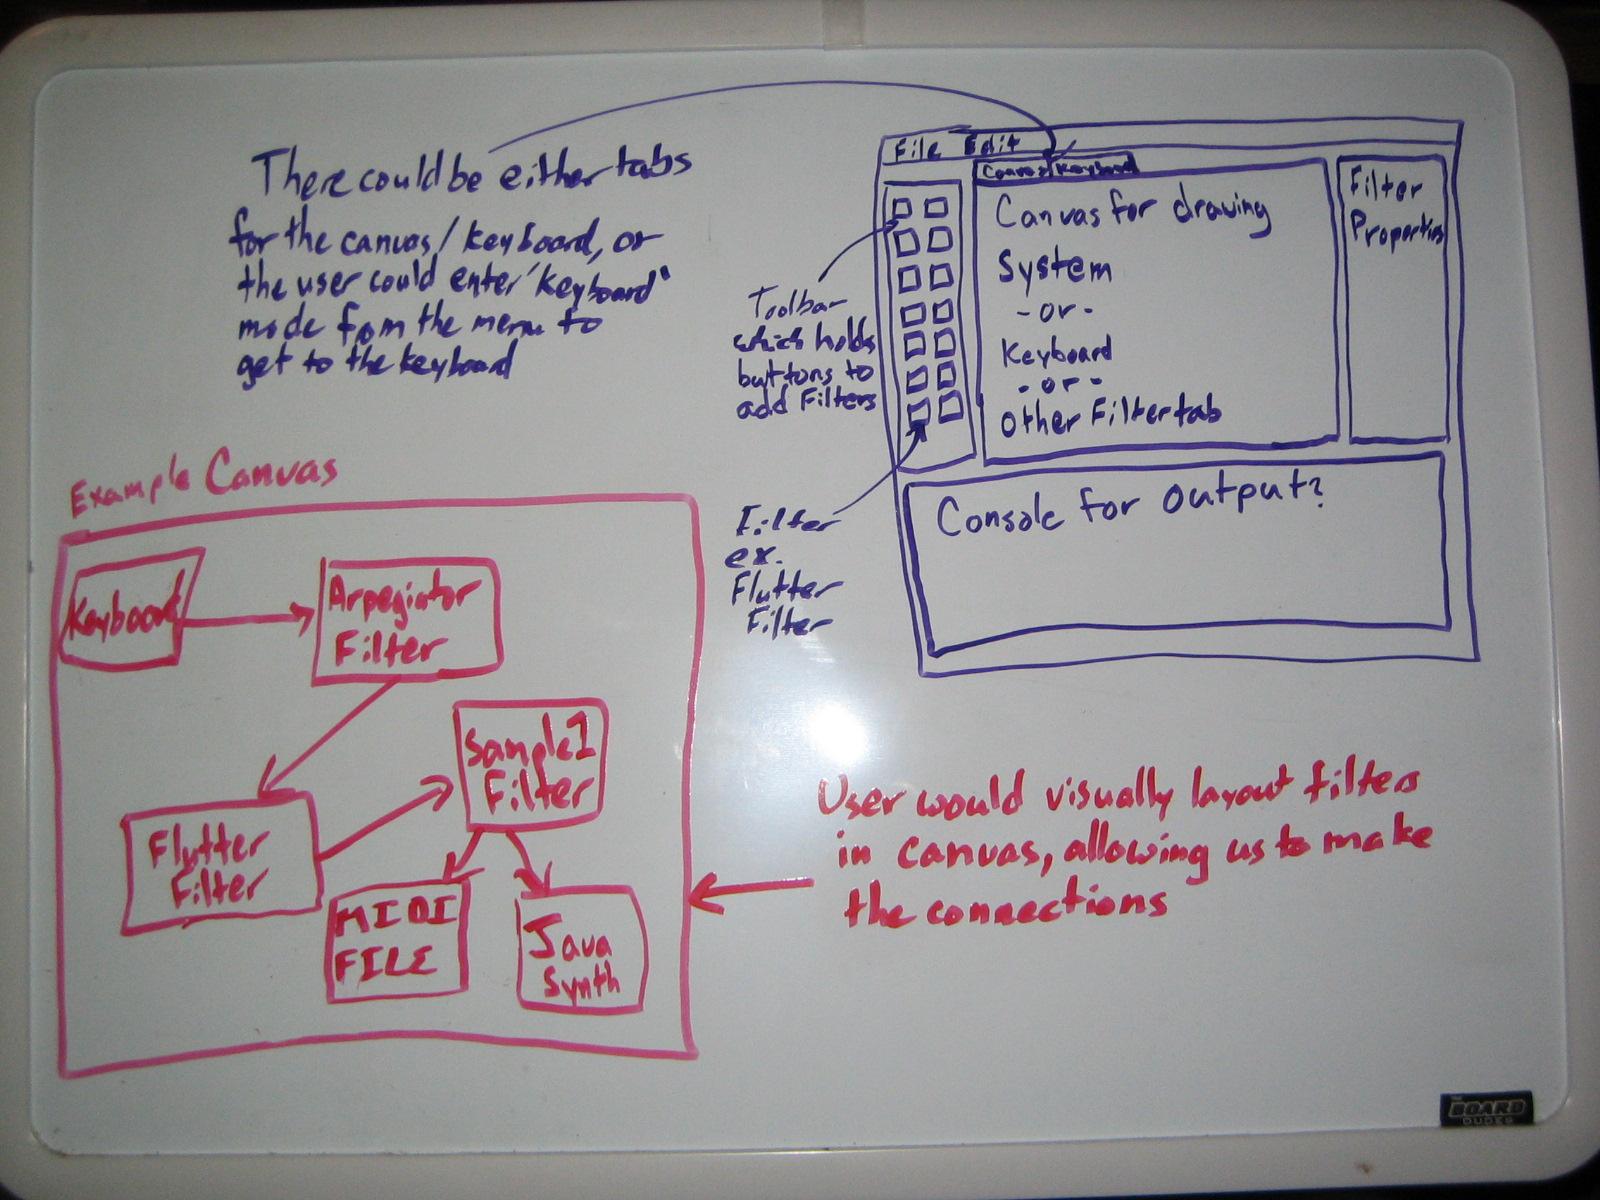 There could be either tabs
for the canvas/keyboard, or
the user could enter "keyboard"
mode from the menu to
get to the keyboard
File Edit
Canvas Keyboard
Canvas for drawing
System
- or -
Keyboard
- or -
Other Filter tab
Filter
Properties
Console for output?
Toolbar
which holds
buttons to
add Filters
Filter
ex.
Flutter
Filter
Example Canvas
Keyboard
Arpegiator
Filter
Flutter
Filter
Sample1
Filter
MIDI
FILE
Java
Synth
User would visually layout filters
in canvas, allowing us to make
the connections
THE
BOARD
DUDES